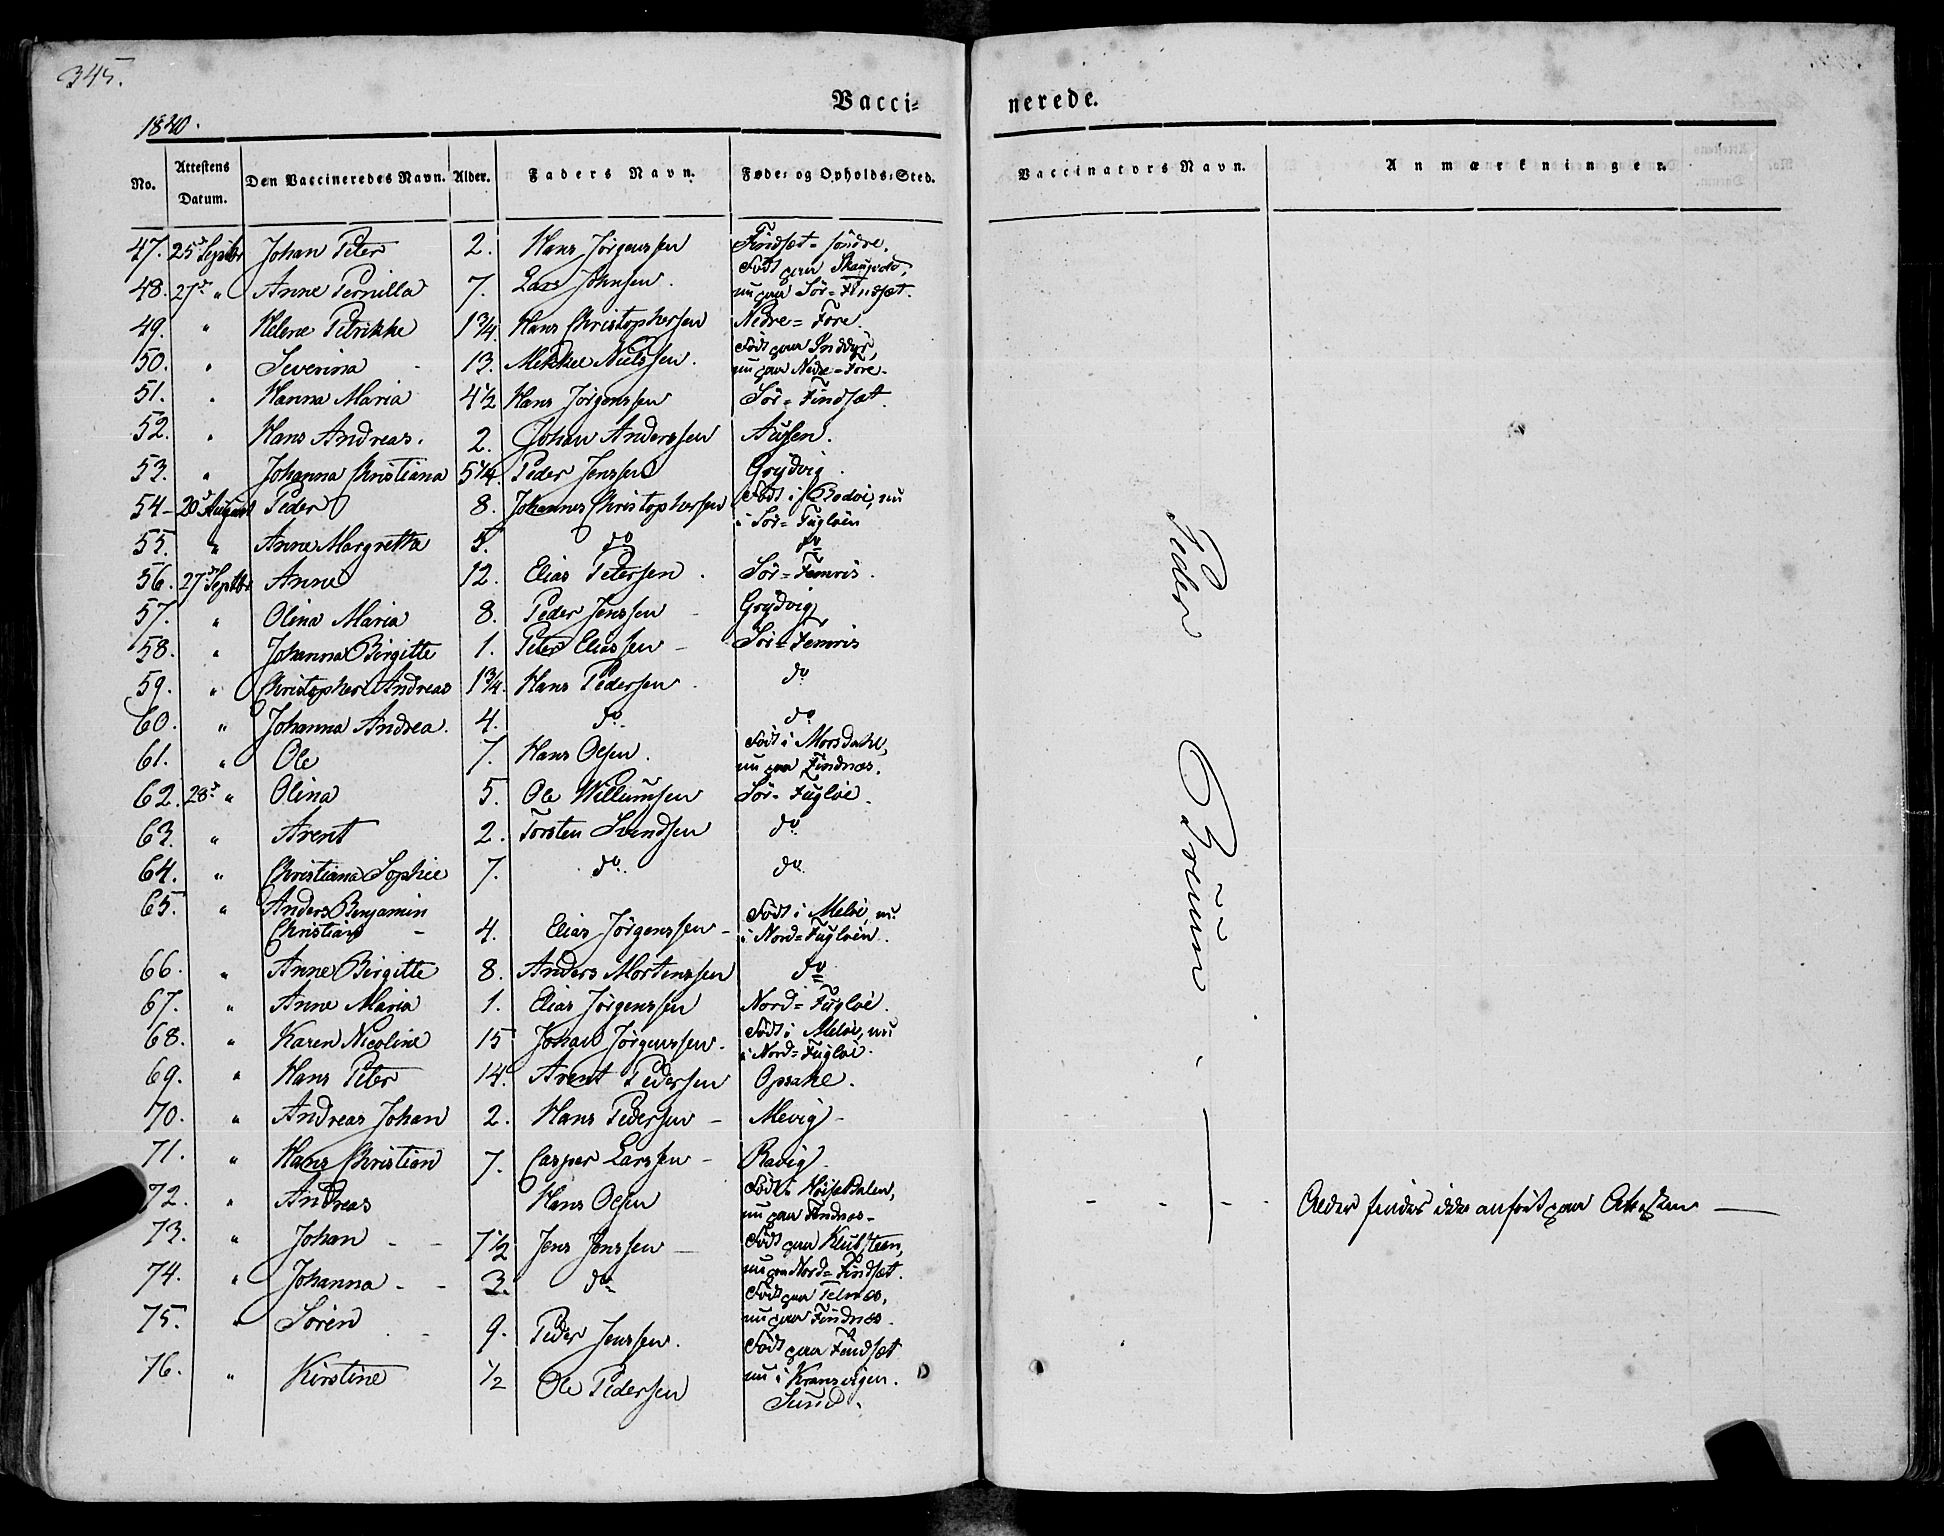 345.
Vacci- nerede.
1840.
No. Attestens Datum. Den Vaccineredes Navn. Alder. Faders Navn. Føde- og Opholds-Sted. Vaccinators Navn. Anmærkninger.
47. 25d Septbr Johan Peter 2. Hans Jörgenssen Findsæt- söndre.
48. 27d " Anne Pernilla 7. Lars Johnsen. Födt paa Skaugvold, nu paa Sör-Findsæt.
49. " Helene Petrikke 1 3/4 Hans Christophersen Nedre-Fore.
50. " Severina 13. Mikkel Nielssen. Födt paa Inddyr, nu paa Nedre-Fore.
51. " Hanna Maria 4 1/2 Hans Jörgenssen Sör-Findsæt.
52. " Hans Andreas. 2. Johan Anderssen Aussen.
53. " Johanna Christiana 5 1/4. Peder Jenssen Grydvig.
54. 20d August Peder 8. Johannes Christophersen Födt i Bodöe, nu i Sör-Fuglöen
55. " Anne Margretha 5. do do
56. 27d Septbr Anne 12. Elias Petersen. Sör-Femris.
57. " Olina Maria 8. Peder Jenssen Grydvig
58. " Johanna Birgitte 1. Peter Eliassen Sör-Femris
59. " Christopher Andreas 1 3/4. Hans Pedersen. do
60. " Johanna Andrea. 4. do do
61. " Ole 7. Hans Olsen. Födt i Morsdahl, nu paa Findnæs.
62. 28d " Olina 5. Ole Willumsen Sör-Fuglöe.
63. " Arent 2. Torsten Svendsen do
64. " Christiana Sophie 7. do. do
65. " Anders Benjamin
Christian 4. Elias Jörgenssen Födt i Melöe, nu i Nord-Fuglöen.
66. " Anne Birgitte 8. Anders Mortenssen do
67. " Anne Maria 1. Elias Jörgenssen Nord-Fuglöe.
68. " Karen Nicoline 15 Johan Jörgenssen. Födt i Melöe, nu i Nord-Fuglöe.
69. " Hans Peter 14. Arent Pedersen Opsahl.
70. " Andreas Johan 2. Hans Pedersen Mevig
71. " Hans Christian 7. Casper Larssen Ravig
72. " Andreas Hans Olsen Födt i nu paa Findnæs Alder findes ikke anfört paa Attesten
73. " Johan 7 1/2 Jens Jenssen Födt paa Klubsteen, nu paa Nord-Findsæt.
74. " Johanna 3. do Födt paa Telnæs, nu paa Findnæs.
75. " Sören 9. Peder Jenssen. Födt paa Findsæt nu i Kransvigen.
76. " Kirstine 1/2 Ole Pedersen Sund.
Peder Bruun